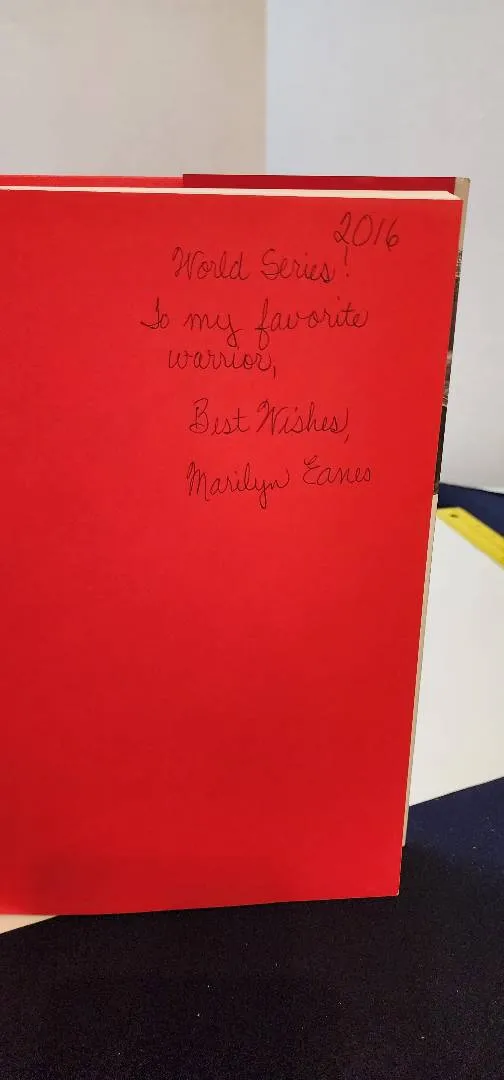 2016
World Series!
To my favorite
warrior,
Best Wishes,
Marilyn Eanes